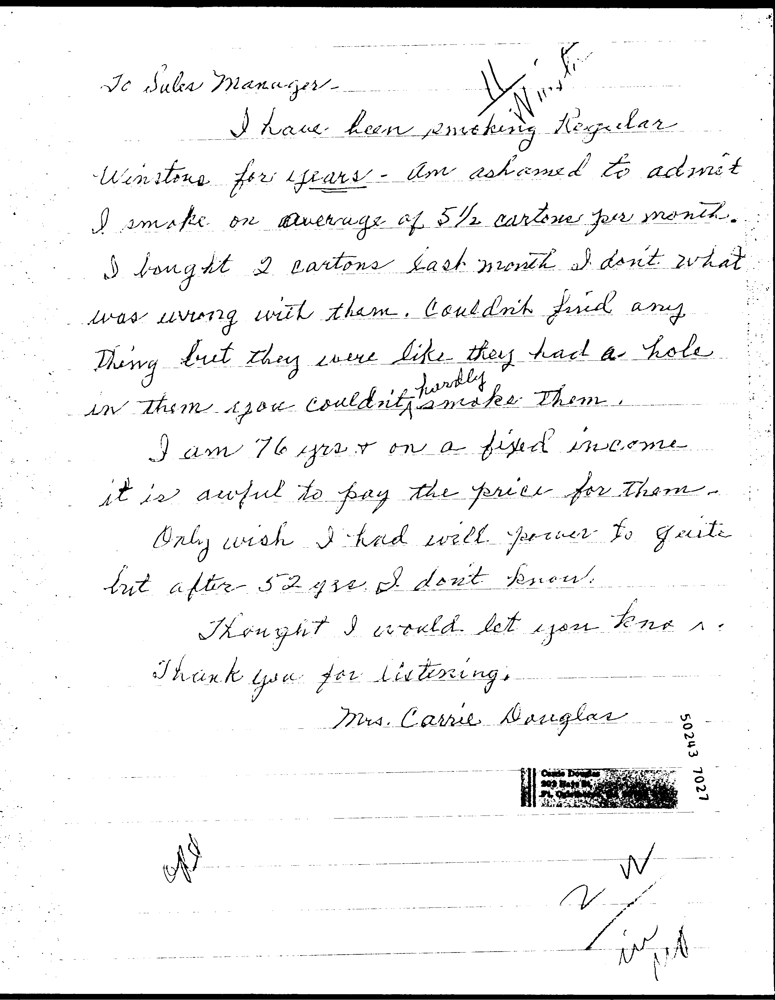 To Sales Manager-
Winston
I have been smoking Regular
Winstons for years - am ashamed to admit
I smoke on average of 5 1/2 cartons per month.
I bought 2 cartons last month I don't what
was wrong with them. Couldn't find any
thing but they were like they had a hole
in them you couldn't hardly smoke them.
I am 76 yrs & on a fixed income
it is awful to pay the price for them.
Only wish I had will power to quite
but after 52 yrs I don't know.
Thought I would let you know.
Thank you for listening.
Mrs. Carrie Douglas
50243 7027
Carrie Douglas
2 W
in